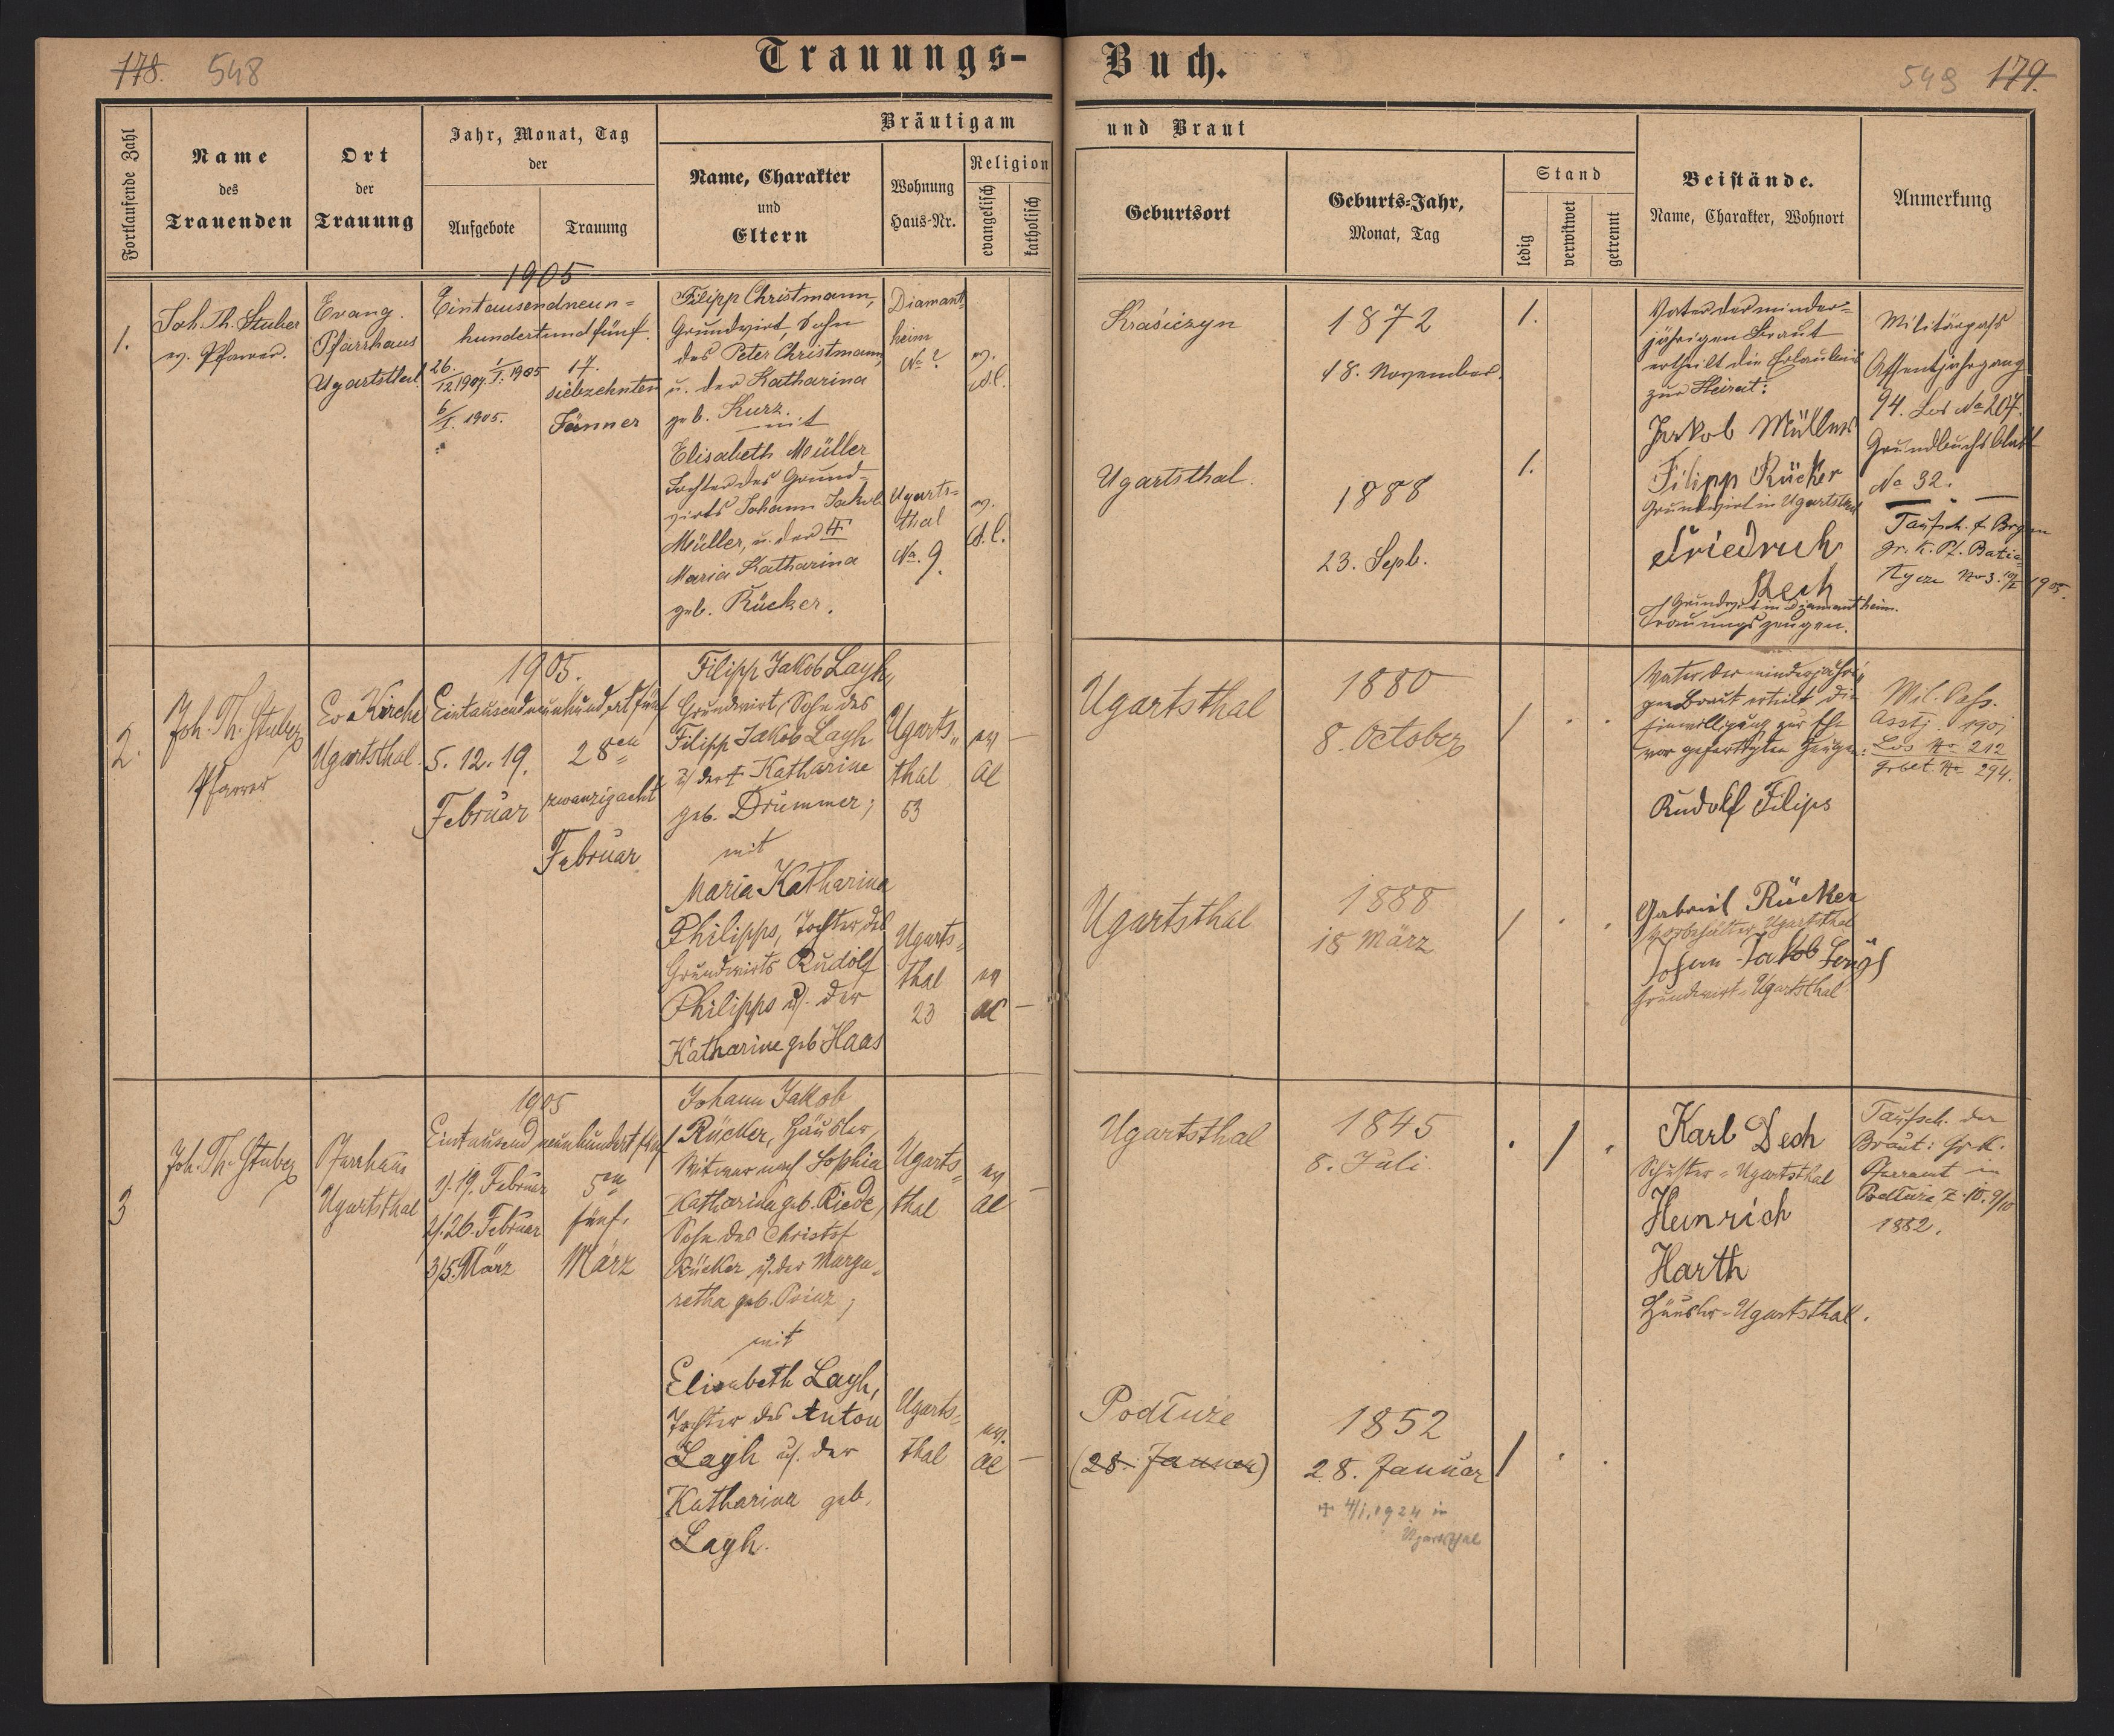 178. 548
Trauungs-
Buch.
549 179.
Fortlaufende Zahl
Name
des
Trauenden
Ort
der
Trauung
Jahr, Monat, Tag
der
Aufgebote
Trauung
Bräutigam
und Braut
Name, Charakter
und
Eltern
Wohnung
Haus-Nr.
Religion
evangelisch
katholisch
Geburtsort
Geburts-Jahr,
Monat, Tag
Stand
ledig
verwitwet
getrennt
Beistände.
Name, Charakter, Wohnort
Anmerkung
1.
Joh. Th. Stuber
ev. Pfarrer.
Evang.
Pfarrhaus
Ugartsthal.
1905
Eintausendneun=
hundertundfünf.
26./12.1904. 1/I. 1905
6/I. 1905.
17.
siebzehnten
Jänner
Filipp Christmann,
Grundwirt, Sohn
des Peter Christmann,
u. der Katharina
geb. Kurz.
mit
Elisabeth Müller
Tochter des Grund-
wirts Johann Jakob
Müller, u. der ‡
Maria Katharina
geb. Rücker.
Diamant
heim
No ?
ev.
A.C.
Ugarts=
thal
No. 9.
ev.
A.C.
Krasiczyn
1872
18. November.
1.
Ugartsthal.
1888
23. Sepb.
1.
Vater der minder=
jährigen Braut
ertheilt die Erlaubnis
zur Heirat:
Jakob Müller
Filipp Rücker
Grundwirt in Ugartsthal
Friedrich
Rech
Grundwirt in Diamantheim.
Trauungszeugen.
Militärpass
Assentjahrgang
94. Los No 207.
Grundbuchsblatt
No 32.
Taufsch. d. Brgm
gr. K. Pf. Batia=
tycze No 3. 10/I 1905.
2.
Joh. Th. Stuber
Pfarrer
Ev. Kirche
Ugartsthal.
1905.
Eintausendneunhundertfünf
5. 12. 19.
Februar
28en
zwanzigacht
Februar
Filipp Jakob Layh,
Grundwirt, Sohn des
Filipp Jakob Layh
u/ der † Katharine
geb. Drummer;
mit
Maria Katharina
Philipps, Tochter des
Grundwirts Rudolf
Philipps u/. der
Katharine geb Haas
Ugarts„
thal
53
ev
AC
Ugarts„
thal
23
ev
AC
Ugartsthal
1880
8. October
/
Ugartsthal
1888
18 März
/
Vater der minderjähri„
gen Braut erteilt die
Einwilligung zur Ehe
vor gefertigten Zeugen:
Rudolf Filips
Gabriel Rücker
Ugartsthal
Johan Jakob
Grundwirt-Ugartsthal
Mil. Pass.
Asstj. 1901
Los No 212
Grbbt. No 294.
3
Joh. Th. Stuber
Pfarrhaus
Ugartsthal
1905
Eintausendneunhundertfünf
1/. 19. Februar
2/. 26. Februar
3/5. März
5en
fünf.
März
Johann Jakob
Rücker, Häusler,
Witwer nach Sophia
Katharina geb. Riede,
Sohn des Christof
Rücker u/. der Marga„
retha geb. Prinz;
mit
Elisabeth Layh,
Tochter des Anton
Layh u/. der
Katharina geb.
Layh.
Ugarts„
thal
ev
AC
Ugarts„
thal
ev.
AC
Ugartsthal
1845
8. Juli.
/
Podluze
(28. Janner)
1852
28. Januar
✝ 4/1. 1924 in
Ugartsthal
/
Karl Dech
Schuster-Ugartsthal
Heinrich
Harth
Häusler-Ugartsthal.
Taufsch. der
Braut: Gr. K.
Pfarramt in
Podluze Z. 10. 9/10
1882.